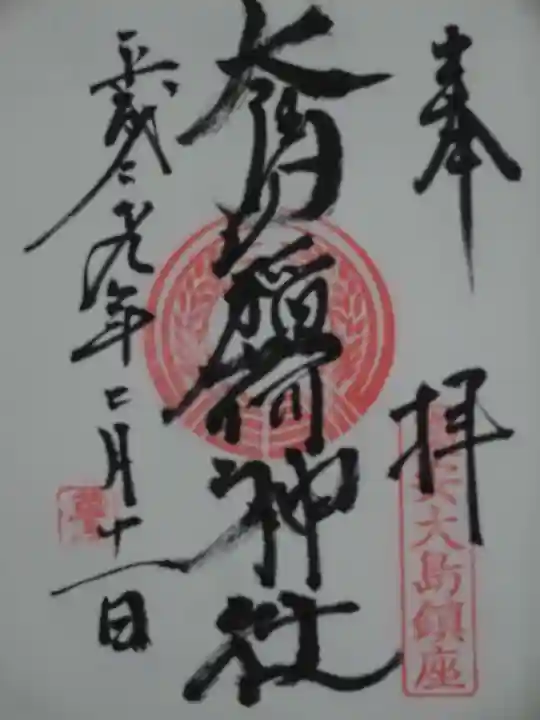 奉拝
大島鎮座
大島稲荷神社
平成二十九年二月十一日